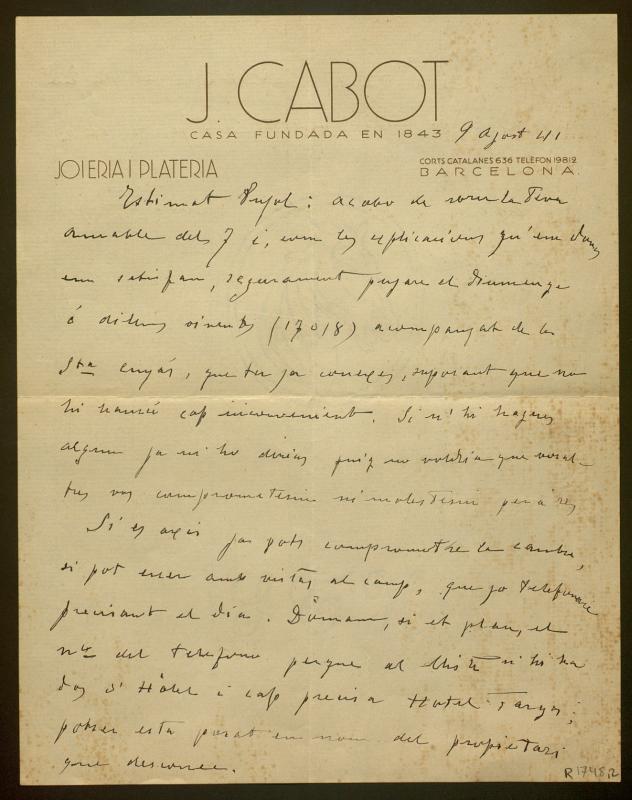 J. CABOT
CASA FUNDADA EN 1843
9 Agost 41
JOIERIA I PLATERIA
CORTS CATALANES 636 TELÈFON 19812
BARCELONA.
Estimat Pujol: acabo de rebre la teva
amable del 7 i, com les explicacions qu'em dones
em satisfan, segurament pujare el diumenge
ó dilluns vinents (17 o 18) acompanyat de la
Sta, que tu ja coneixes, suposant que no
hi haurà cap inconvenient. Si n'hi hagues
algun ja m'ho diries puig no voldria que vosal-
tres vos comprometessiu ni molestessiu per a res
Si es aixis ja pots comprometre la cambra,
si pot esser amb vistas al camp, que jo telefonaré
precisant el dia. Dónam, si et plau, el
nre del telefono perque al llistí n'hi ha
dos d'Hôtel i cap precisa Hotel;
potser esta posat en nom del propietari
que desconec.
R 1748,2